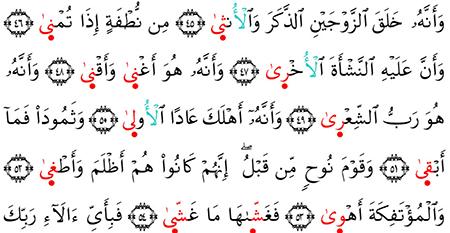 وَأَنَّهُۥ خَلَقَ ٱلزَّوْجَيْنِ ٱلذَّكَرَ وَٱلْأُنثَىٰ ﴿٤٥﴾ مِن نُّطْفَةٍ إِذَا تُمْنَىٰ ﴿٤٦﴾
وَأَنَّ عَلَيْهِ ٱلنَّشْأَةَ ٱلْأُخْرَىٰ ﴿٤٧﴾ وَأَنَّهُۥ هُوَ أَغْنَىٰ وَأَقْنَىٰ ﴿٤٨﴾ وَأَنَّهُۥ
هُوَ رَبُّ ٱلشِّعْرَىٰ ﴿٤٩﴾ وَأَنَّهُۥٓ أَهْلَكَ عَادًا ٱلْأُولَىٰ ﴿٥٠﴾ وَثَمُودَا۟ فَمَآ
أَبْقَىٰ ﴿٥١﴾ وَقَوْمَ نُوحٍ مِّن قَبْلُ ۖ إِنَّهُمْ كَانُوا۟ هُمْ أَظْلَمَ وَأَطْغَىٰ ﴿٥٢﴾
وَٱلْمُؤْتَفِكَةَ أَهْوَىٰ ﴿٥٣﴾ فَغَشَّىٰهَا مَا غَشَّىٰ ﴿٥٤﴾ فَبِأَىِّ ءَالَآءِ رَبِّكَ